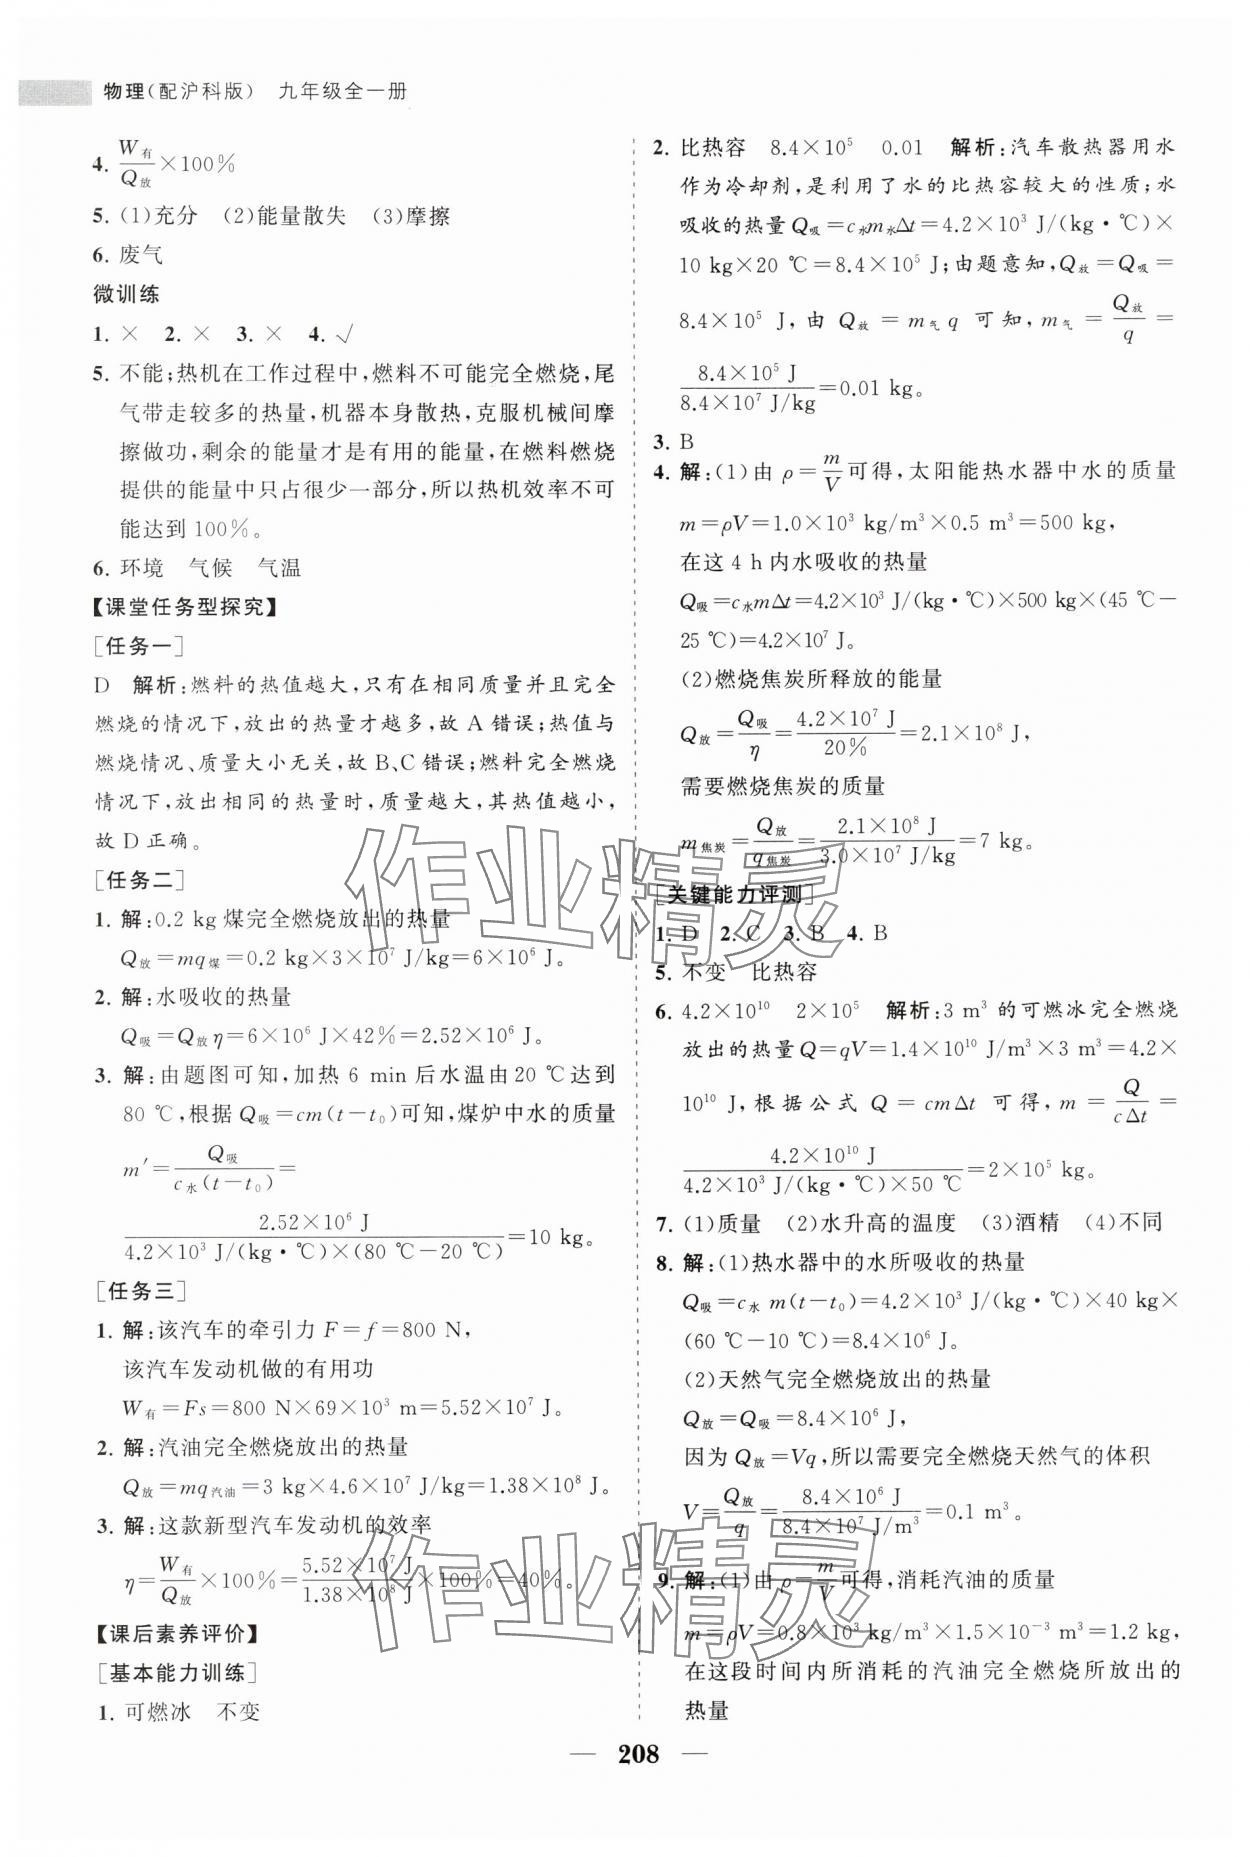 物理(配沪科版) 九年级全一册
4. W有/Q放×100%
5. (1)充分 (2)能量散失 (3)摩擦
6. 废气
微训练
1. × 2. × 3. × 4. √
5. 不能;热机在工作过程中,燃料不可能完全燃烧,尾
气带走较多的热量,机器本身散热,克服机械间摩
擦做功,剩余的能量才是有用的能量,在燃料燃烧
提供的能量中只占很少一部分,所以热机效率不可
能达到100%。
6. 环境 气候 气温
【课堂任务型探究】
[任务一]
D 解析:燃料的热值越大,只有在相同质量并且完全
燃烧的情况下,放出的热量才越多,故 A 错误;热值与
燃烧情况、质量大小无关,故 B、C 错误;燃料完全燃烧
情况下,放出相同的热量时,质量越大,其热值越小,
故 D 正确。
[任务二]
1. 解:0.2 kg 煤完全燃烧放出的热量
Q放=mq煤=0.2 kg×3×10⁷ J/kg=6×10⁶ J。
2. 解:水吸收的热量
Q吸=Q放η=6×10⁶ J×42%=2.52×10⁶ J。
3. 解:由题图可知,加热 6 min 后水温由 20 ℃达到
80 ℃,根据 Q吸=cm(t-t₀)可知,煤炉中水的质量
m′=Q吸/c水(t-t₀)=
2.52×10⁶ J/4.2×10³ J/(kg·℃)×(80 ℃-20 ℃)=10 kg。
[任务三]
1. 解:该汽车的牵引力 F=f=800 N,
该汽车发动机做的有用功
W有=Fs=800 N×69×10³ m=5.52×10⁷ J。
2. 解:汽油完全燃烧放出的热量
Q放=mq汽油=3 kg×4.6×10⁷ J/kg=1.38×10⁸ J。
3. 解:这款新型汽车发动机的效率
η=W有/Q放×100%=5.52×10⁷ J/1.38×10⁸ J×100%=40%。
【课后素养评价】
[基本能力训练]
1. 可燃冰 不变
2. 比热容 8.4×10⁵ 0.01 解析:汽车散热器用水
作为冷却剂,是利用了水的比热容较大的性质;水
吸收的热量 Q吸=c水m水Δt=4.2×10³ J/(kg·℃)×
10 kg×20 ℃=8.4×10⁵ J;由题意知,Q放=Q吸=
8.4×10⁵ J,由 Q放=m气q 可知,m气=Q放/q=
8.4×10⁵ J/8.4×10⁷ J/kg=0.01 kg。
3. B
4. 解:(1)由 ρ=m/V可得,太阳能热水器中水的质量
m=ρV=1.0×10³ kg/m³×0.5 m³=500 kg,
在这 4 h 内水吸收的热量
Q吸=c水mΔt=4.2×10³ J/(kg·℃)×500 kg×(45 ℃-
25 ℃)=4.2×10⁷ J。
(2)燃烧焦炭所释放的能量
Q放=Q吸/η=4.2×10⁷ J/20%=2.1×10⁸ J,
需要燃烧焦炭的质量
m焦炭=Q放/q焦炭=2.1×10⁸ J/3.0×10⁷ J/kg=7 kg。
[关键能力评测]
1. D 2. C 3. B 4. B
5. 不变 比热容
6. 4.2×10¹⁰ 2×10⁵ 解析:3 m³ 的可燃冰完全燃烧
放出的热量 Q=qV=1.4×10¹⁰ J/m³×3 m³=4.2×
10¹⁰ J,根据公式 Q=cmΔt 可得,m=Q/cΔt=
4.2×10¹⁰ J/4.2×10³ J/(kg·℃)×50 ℃=2×10⁵ kg。
7. (1)质量 (2)水升高的温度 (3)酒精 (4)不同
8. 解:(1)热水器中的水所吸收的热量
Q吸=c水 m(t-t₀)=4.2×10³ J/(kg·℃)×40 kg×
(60 ℃-10 ℃)=8.4×10⁶ J。
(2)天然气完全燃烧放出的热量
Q放=Q吸=8.4×10⁶ J,
因为 Q放=Vq,所以需要完全燃烧天然气的体积
V=Q放/q=8.4×10⁶ J/8.4×10⁷ J/m³=0.1 m³。
9. 解:(1)由 ρ=m/V可得,消耗汽油的质量
m=ρV=0.8×10³ kg/m³×1.5×10⁻³ m³=1.2 kg,
在这段时间内所消耗的汽油完全燃烧所放出的
热量
作业精灵
作业精灵
— 208 —